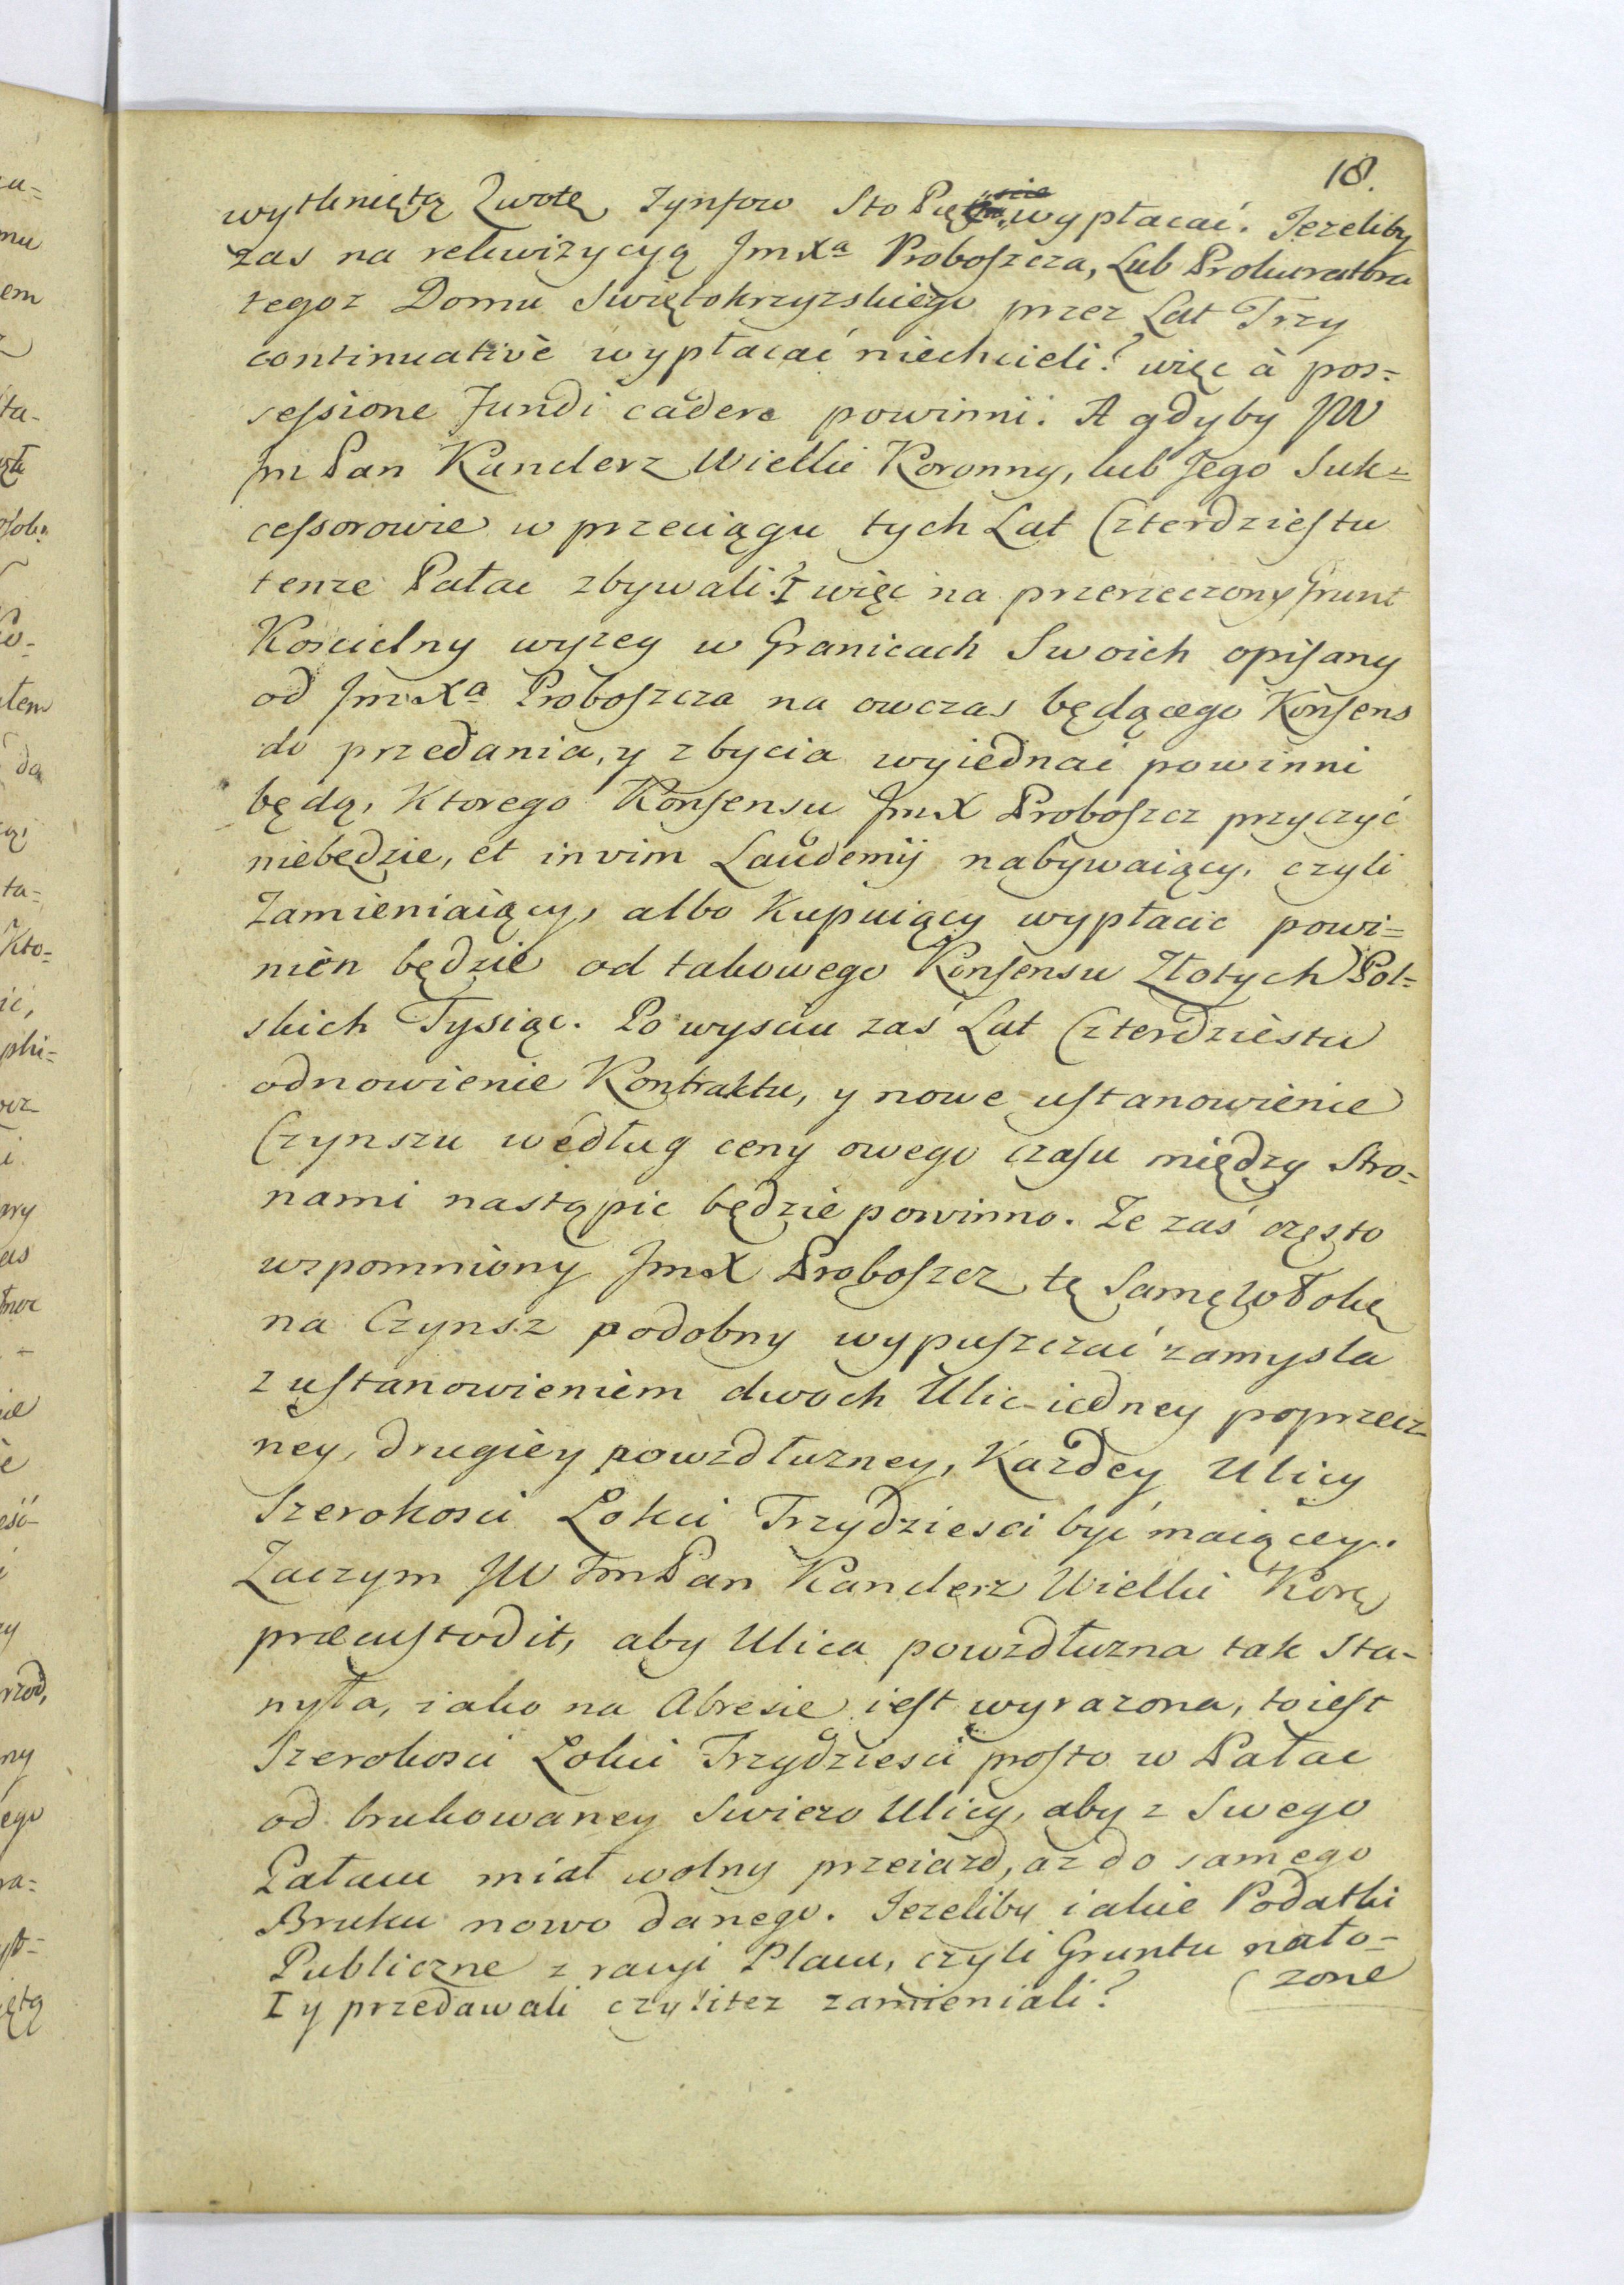 18.
wytkniętą Kwotę Tynfow Sto Pięć wypłacać. Jezeliby
zas na rekwizycyą JmXa Proboszcza, Lub Prokuratora
tegoz Domu Swiętokrzyzskiego przez Lat Trzy
continuativè wypłacać niechcieli? więc à pos=
sessione Fundi cadere powinni. A gdyby JW
Jm Pan Kanclerz Wielki Koronny, lub Jego Suk=
cessorowie w przeciągu tych Lat Czterdziestu
tenze Pałac zbywali? I więc na przerzeczony Grunt
Koscielny wyzey w Granicach Swoich opisany
od JmXa Proboszcza na owczas będącego Konsens
do przedania, y zbycia wyiednać powinni
będą, Ktorego Konsensu JmX Proboszcz przyczyć
niebędzie, et in vim Laudemij nabywaiący, czyli
Zamieniaiący, albo Kupuiący wypłacic powi=
nien będzie od takowego Konsensu Złotych Pol=
skich Tysiąc. Po wysciu zaś Lat Czterdziestu
odnowienie Kontraktu, y nowe ustanowienie
Czynszu według ceny owego czasu między Stro=
nami nastąpic będzie powinno. Ze zaś często
wspomniony JmX Proboszcz tę Samę Włokę
na Czynsz podobny wypuszczać zamysla
z ustanowieniem dwoch Ulic iedney poprzecz
ney, drugiey powzdłuzney, Kazdey Ulicy
Szerokosci Łokci Trzydziesci być maiącey.
Zaczym JW JmPan Kanclerz Wielki Korỹ
præcustodit, aby Ulica powzdłuzna tak Sta-
nyła, iako na Abresie iest wyrazona, to iest
Szerokosci Łokci Trzydziesci prosto w Pałac
od brukowaney Swiezo Ulicy, aby z Swego
Pałacu miał wolny przeiazd, az do samego
Bruku nowo danego. Jezeliby iakie Podatki
Publiczne z racyi Placu, czyli Gruntu nało=
zone
I y przedawali czylitez zamieniali?